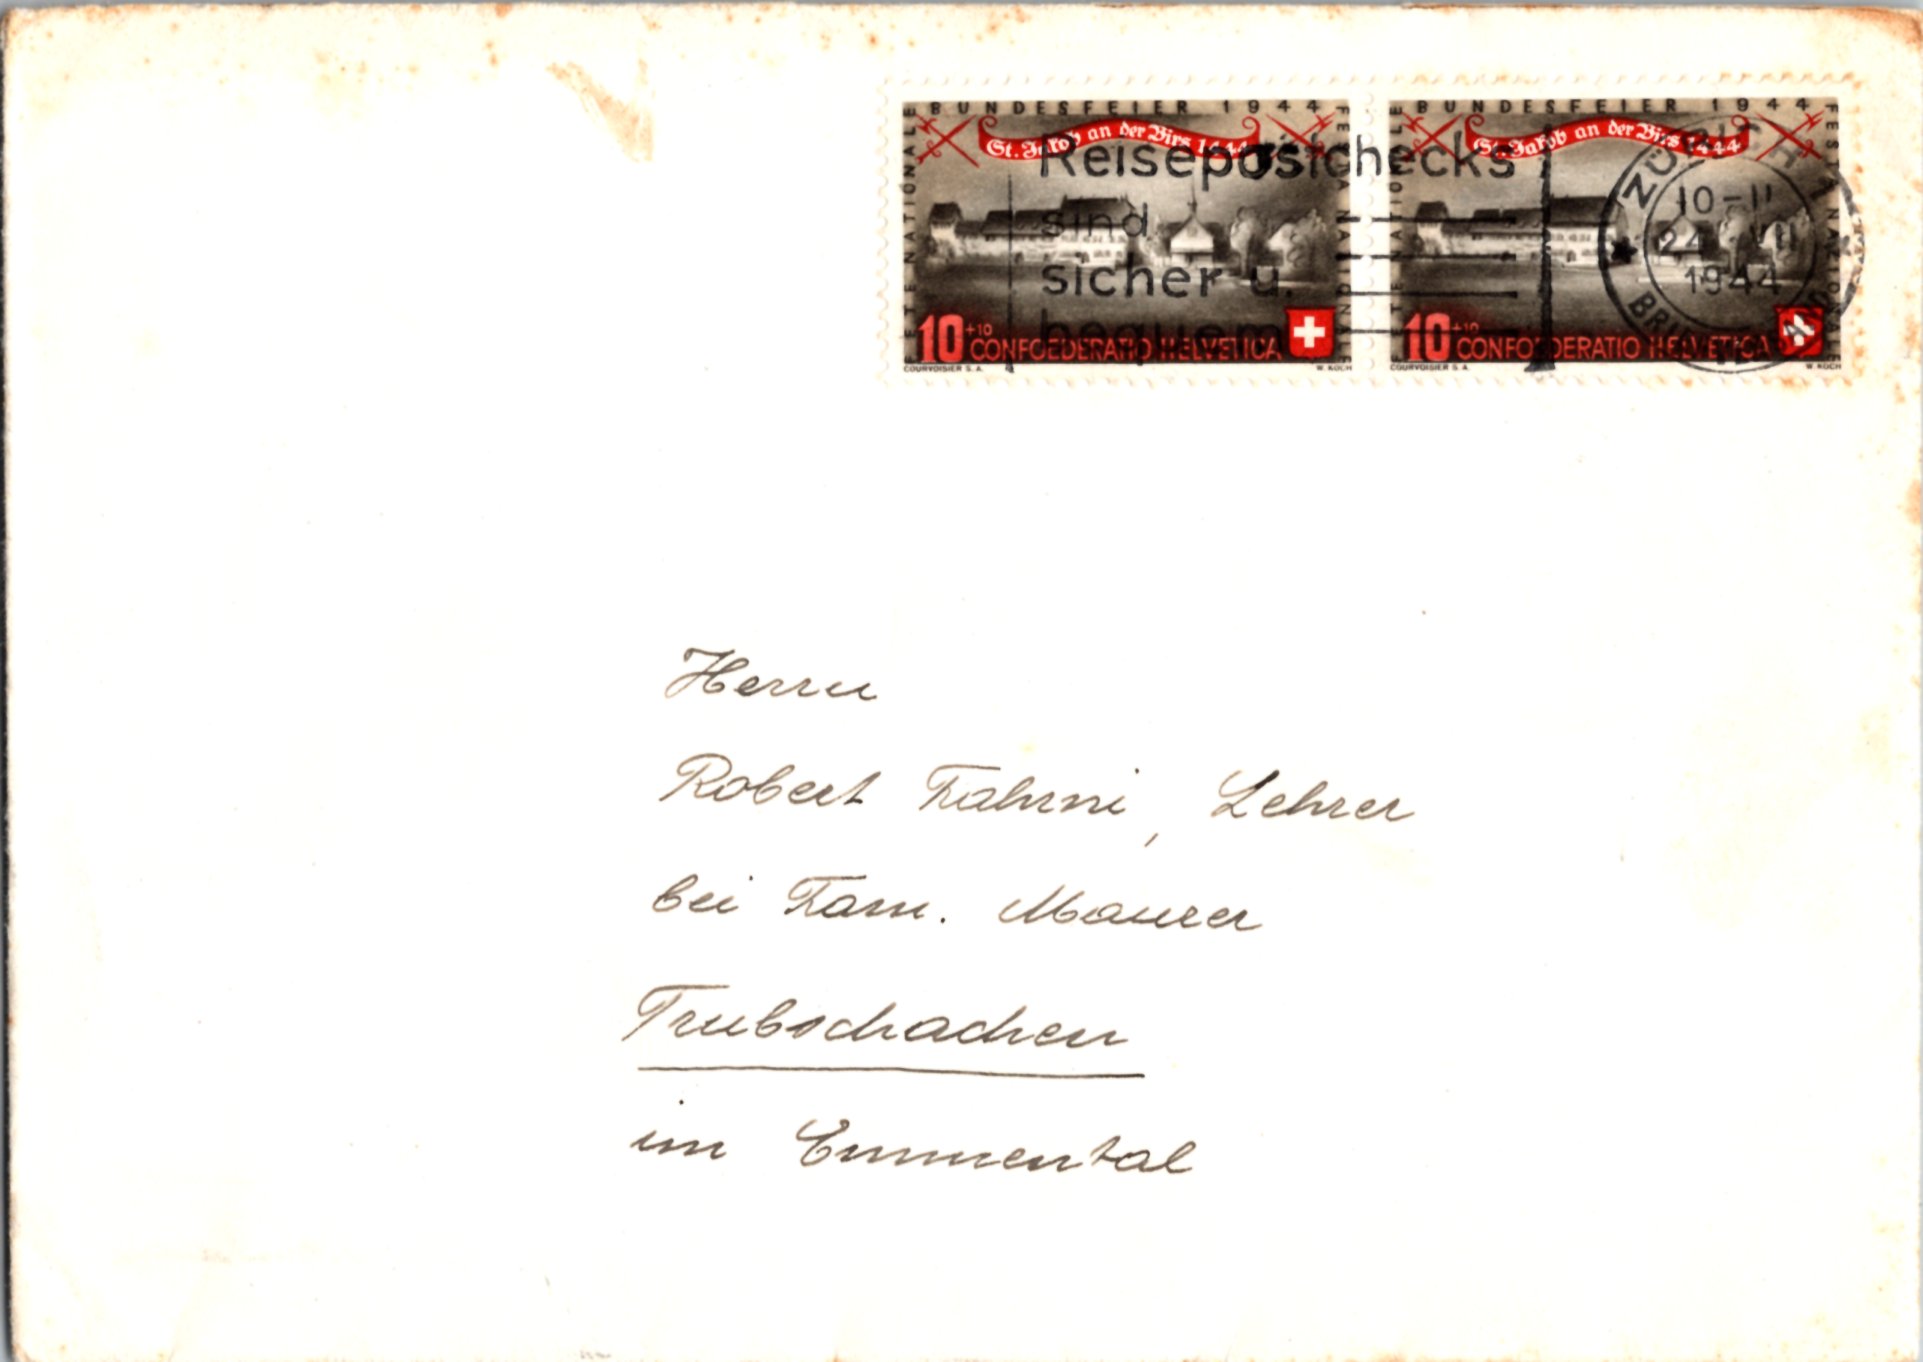 BUNDESFEIER 1944
FETE NATIONALE
FESTA NAZIONALE
St. Jakob an der Birs 1444
10 +10
CONFOEDERATIO HELVETICA
COURVOISIER S. A.
W. KOCH
BUNDESFEIER 1944
FETE NATIONALE
FESTA NAZIONALE
St. Jakob an der Birs 1444
10 +10
CONFOEDERATIO HELVETICA
COURVOISIER S. A.
W. KOCH
Reisepostchecks
sind
sicher u.
bequem
ZÜRICH 1
10-11
24. VII
1944
Herrn
Robert Fahrni, Lehrer
bei Fam. Maurer
Trubschachen
im Emmental